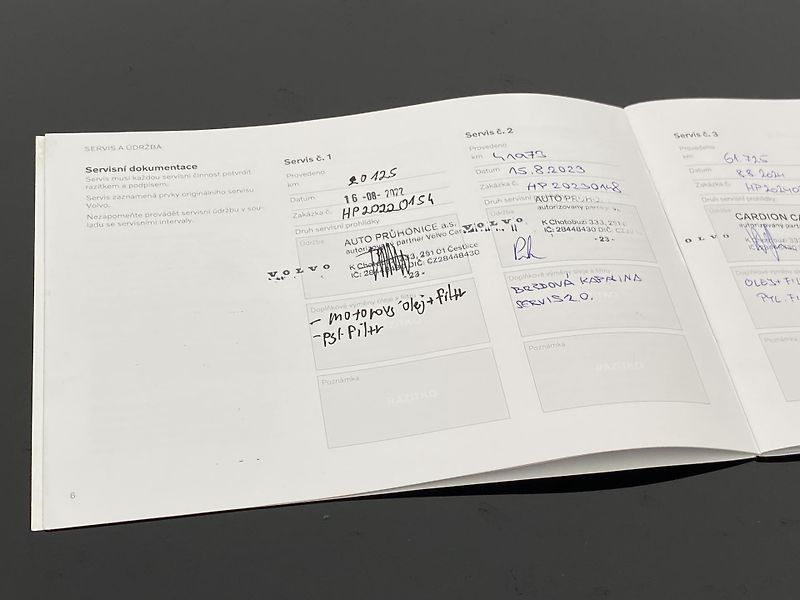 SERVIS A ÚDRŽBA
Servisní dokumentace
Servis musí každou servisní činnost potvrdit
razítkem a podpisem.
Servis zaznamená prvky originálního servisu
Volvo.
Nezapomeňte provádět servisní údržbu v sou-
ladu se servisními intervaly.
6
Servis č. 1
Provedeno
km 20125
Datum 16 -08- 2022
Zakázka č. HP20220154
Druh servisní prohlídky
Údržba
AUTO PRŮHONICE a.s.
autorizovaný partner Volvo Car
K Chotobuzi 333, 251 01 Čestlice
IČ: 28448430 DIČ: CZ28448430
- 23 -
VOLVO
Doplňkové výměny oleje a filtru
- motorový olej + filtr
- pyl. filtr
Poznámka
RAZÍTKO
Servis č. 2
Provedeno
km 41073
Datum 15.8.2023
Zakázka č. HP20230148
Druh servisní prohlídky
Údržba
AUTO PRŮHO
autorizovaný partn
K Chotobuzi 333, 251 0
IČ: 28448430 DIČ: CZ
- 23 -
VOLVO
Doplňkové výměny oleje a filtru
BRZDOVÁ KAPALINA
SERVIS 2.0.
Poznámka
RAZÍTKO
Servis č. 3
Provedeno
km 61725
Datum 8.8.2024
Zakázka č. HP20240
Druh servisní prohlídky
Údržba
CARDION CA
autorizovaný part
VOLVO
Doplňkové výměny oleje
OLEJ + FIL
PYL. FI
Poznámka